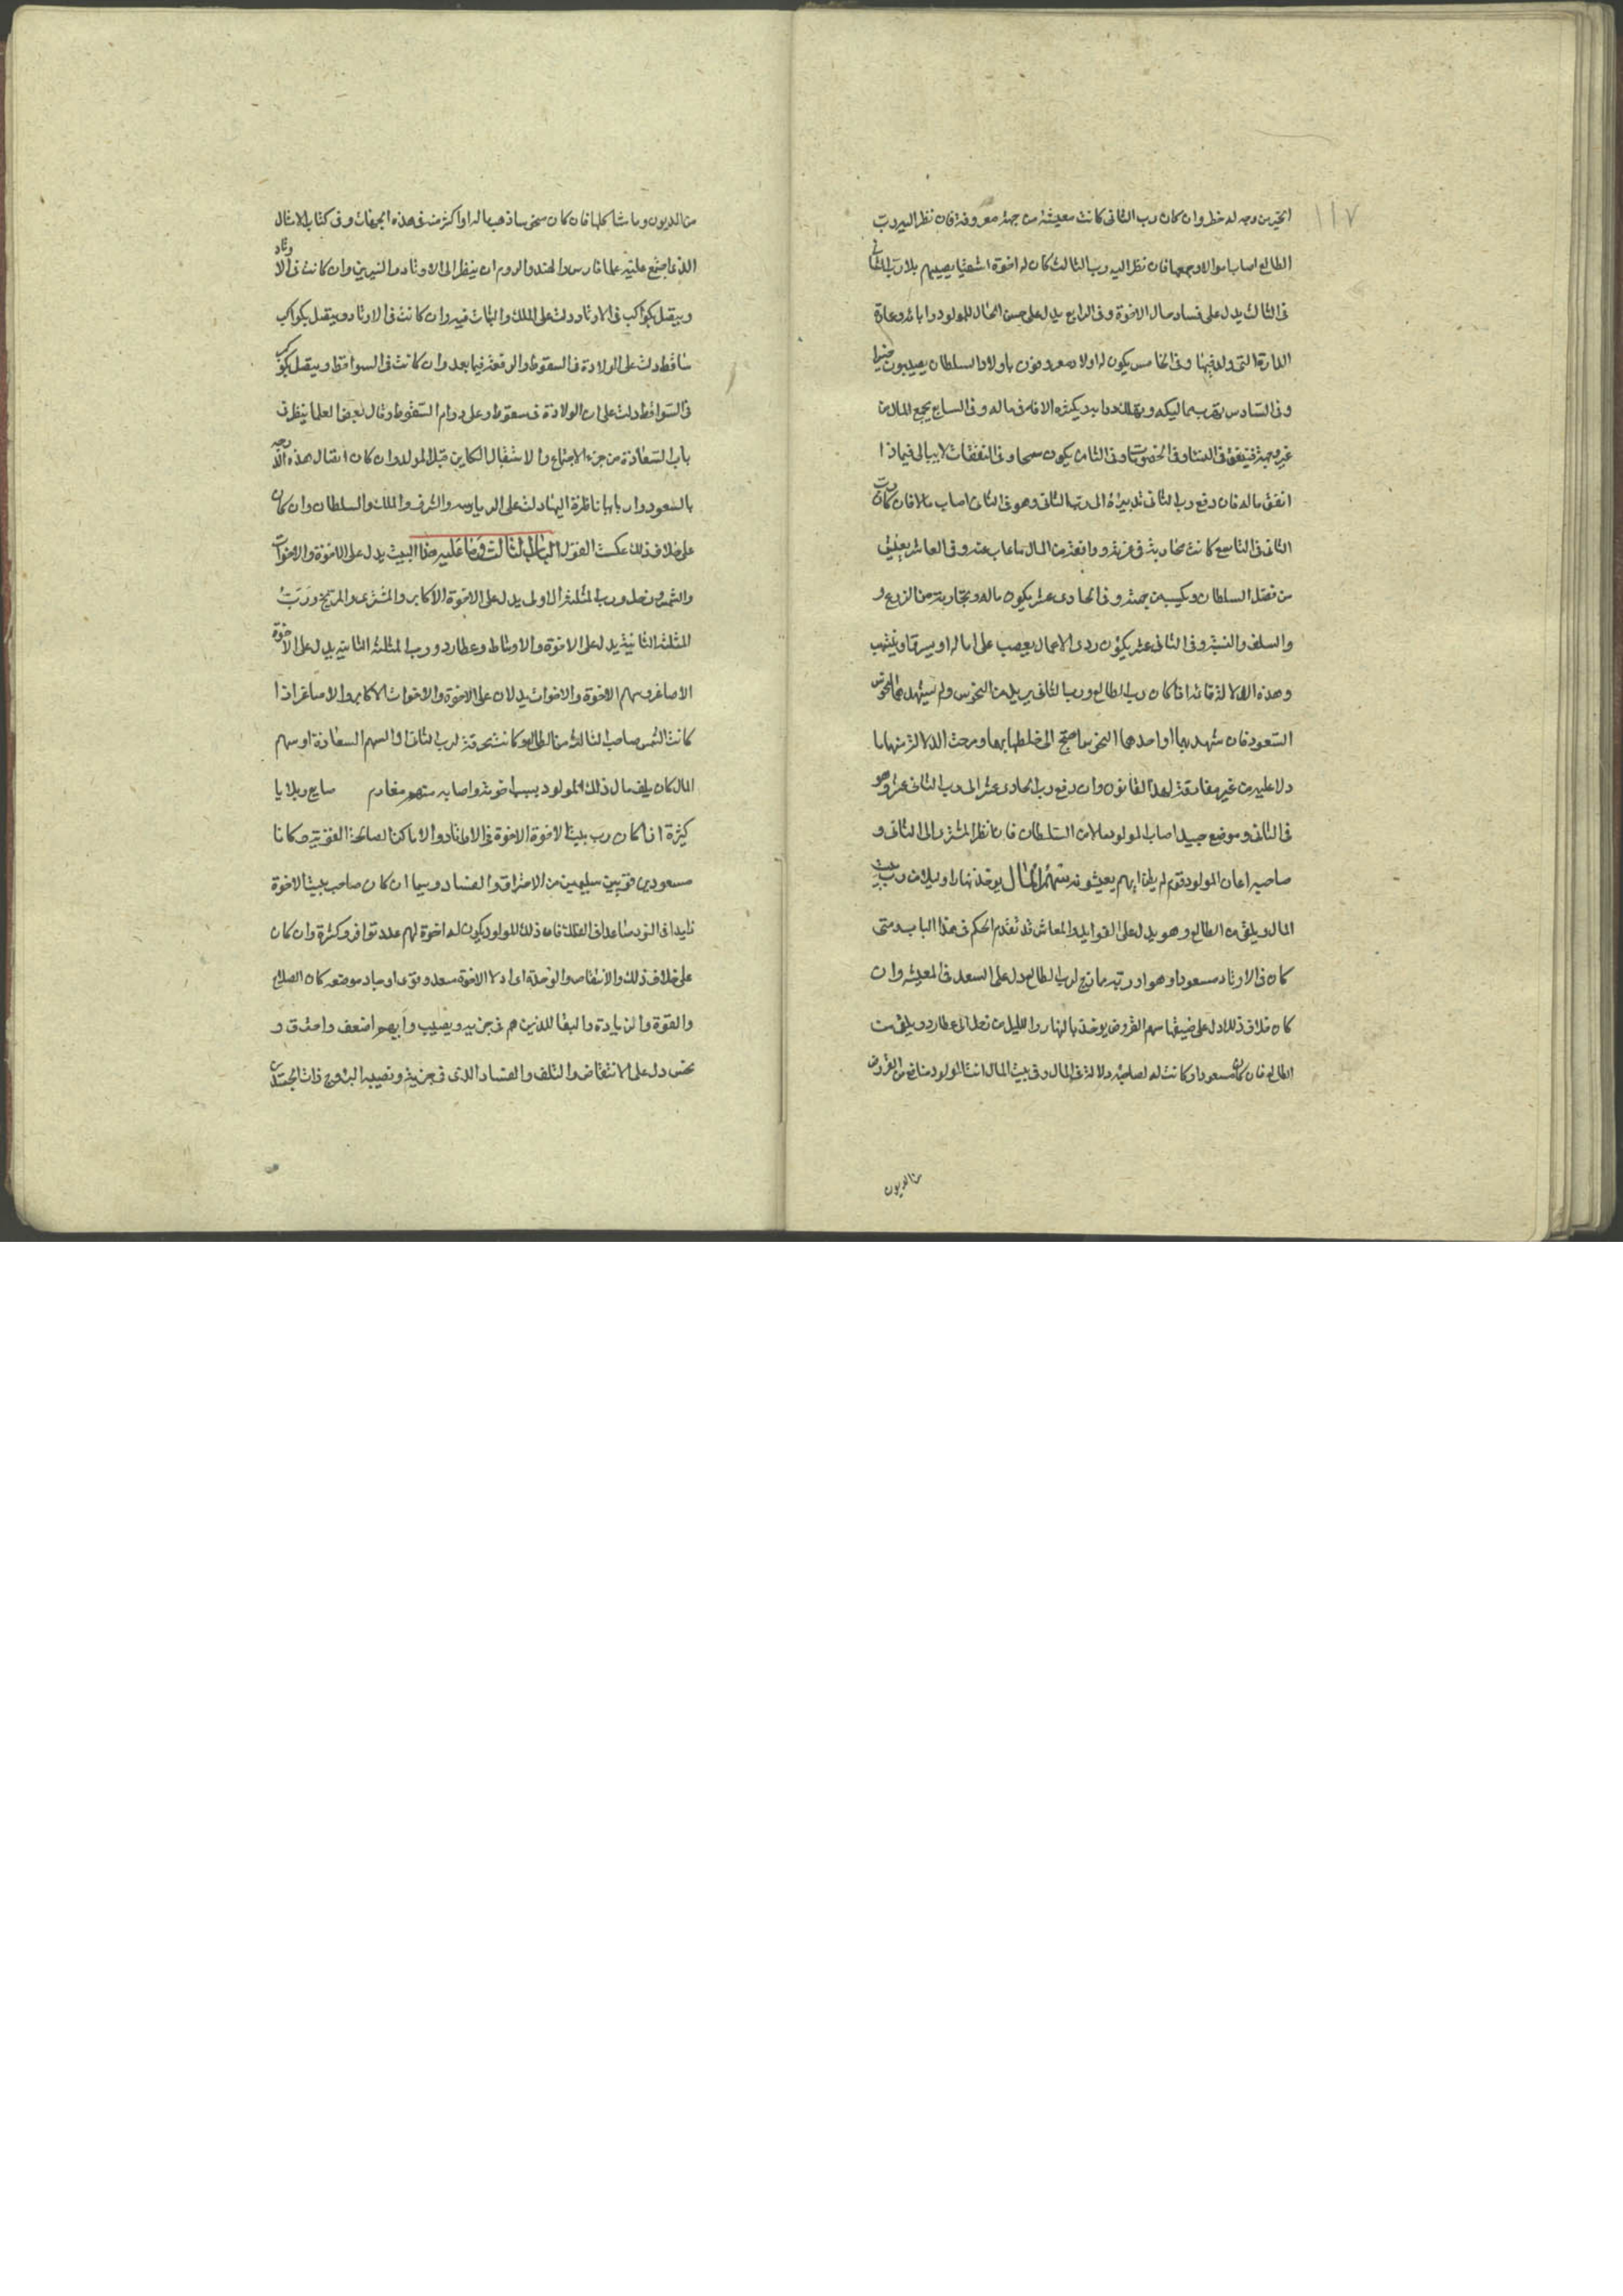 ١١٧
الخير من وجه له خطر وان كان رب الثانى كانت معيشته من جهة معروفة فان نظر اليه رب
الطالع اصاب اموالا وجمعها فان نظر اليه رب الثالث كان له اخوة اشقيا يصيبهم بلا رب الثانى
فى الثالث يدل على فساد حال الاخوة وفى الرابع يدل على حسن الحال للمولود وابائه وعمارة
الدار التى ولد فيها وفى الخامس يكون له اولاد معروفون باولاد السلطان يصيبون خيرا
وفى السادس تهرب مماليكه ودوابه ويكثر الافة فى ماله وفى السابع يجمع المال من
غير وجهه فينفقه فى النساء وفى الخصومات وفى الثامن يكون سمحا وفى النفقات لا يبالى فيما ذا
انفق ماله فان دفع رب الثانى تدبيره الى رب الثانى وهو فى الثانى اصاب مالا فان كان رب
الثانى فى التاسع كانت تجاربته فى غربة ومنفعة من المال ما غاب عنه وفى العاشر يعيش
من فضل السلطان ويكسب من جهته وفى الحادى عشر يكون ماله وتجاربته من الزرع و
والسلف والنسية وفى الثانى عشر يكون ردى الاعمال يغصب على امواله او يسرقها وينتهب
وهذه الدلالة قائمة اذا كان رب الطالع ورب الثانى بريان من النحوس ولم تشهدهما النحوس
السعود فان شهد بهما او احدهما النحوس احتج الى خلطها بها ومزجت الدلالة منهما بما
دلا عليه من غير مفارقة لهذا القانون وان دفع رب الحادى عشر الى رب الثانى عشر وهو
فى الثانى وموضع جيد اصاب المولود مالا من السلطان فان نظر المشترى الى الثانى و
صاحبه اعان المولود قوم لم يظن انهم يعينونه سهم المال يوخذ نهارا وليلا من رب بيت
المال ويلقى من الطالع وهو يدل على الفوايد والمعاش قد تقدم الحكم فى هذا الباب متى
كان فى الاوتاد مسعودا وهو او ربه مازج لرب الطالع دل على السعد فى المعيشه وان
كان خلاف ذلك دل على ضيقها سهم القروض يوخذ بالنهار والليل من زحل الى عطارد ويلقى من
الطالع فان كان مسعودا وكانت له لصاحبه دلالة فى المال وفى بيت المال انتفع المولود من القروض
من الديون
من الديون وما شاكلها فان كان نحسا ذهب ماله او اكثره فى هذه الجهات وفى كتاب الامثال
الذى اجتمع عليه علما فارس والهند والروم ان ينظر الى الاوتاد والنيرين وان كانت فى الاوتاد
ويتصل بكواكب فى الاوتاد دلت على الملك والثبات فيه وان كانت فى الاوتاد ويتصل بكواكب
ساقط دلت على الولادة فى السقوط والرفعة فيما بعد وان كانت فى السواقط ويتصل بكوكب
فى السواقط دلت على ان الولادة فى سقوط وعلى دوام السقوط وقال بعض العلما ينظر فى
باب السعادة من جزء الاجتماع والاستقبال الكاين قبل المولد وان كان اتصال هذه الدرجه
بالسعود واربابها ناظرة اليها دلت على الرياسه والشرف والملك والسلطان وان كان
على خلاف ذلك عكست القول الباب الثالث وما عليه هذا البيت يدل على الاخوة والاخوات
والشمس وزحل ورب المثلثة الاولى يدل على الاخوة الاكابر والمشترى والمريخ ورب
المثلثه الثانية يدل على الاخوة والاوساط وعطارد ورب المثلثه الثالثه يدل على الاخوة
الاصاغر وسهم الاخوة والاخوات يدلان على الاخوة والاخوات الاكابر والاصاغر اذا
كانت الشمس صاحب الثالث من الطالع وكانت محرقة لرب الثانى او السهم السعادة او سهم
المال كان يلف مال ذلك المولود بسبب اخوته واصابه منهم مغارم صايح وبلايا
كثيرة اذا كان رب بيت الاخوة الاخوة فى الاوتاد والاماكن الصالحة القوية وكانا
مسعودين قويين سليمين من الاحتراق والفساد وسيما ان كان صاحب بيت الاخوة
زايدا فى النور صاعدا فى الفلك فان ذلك المولود يكون له اخوة لهم عدد توافر وكثرة وان كان
على خلاف ذلك والانتقاص والوحدة اى ادلا الاخوة سعد وقوى او جاد موضعه كان الصلاح
والقوة والزيادة والبقا للذين هم فى حزبه ونصيب وايهم اضعف واحترق و
نحس دل على الانتقاص والتلف والفساد الذى فى حزبه ونصيبه البروج ذات الجسدين